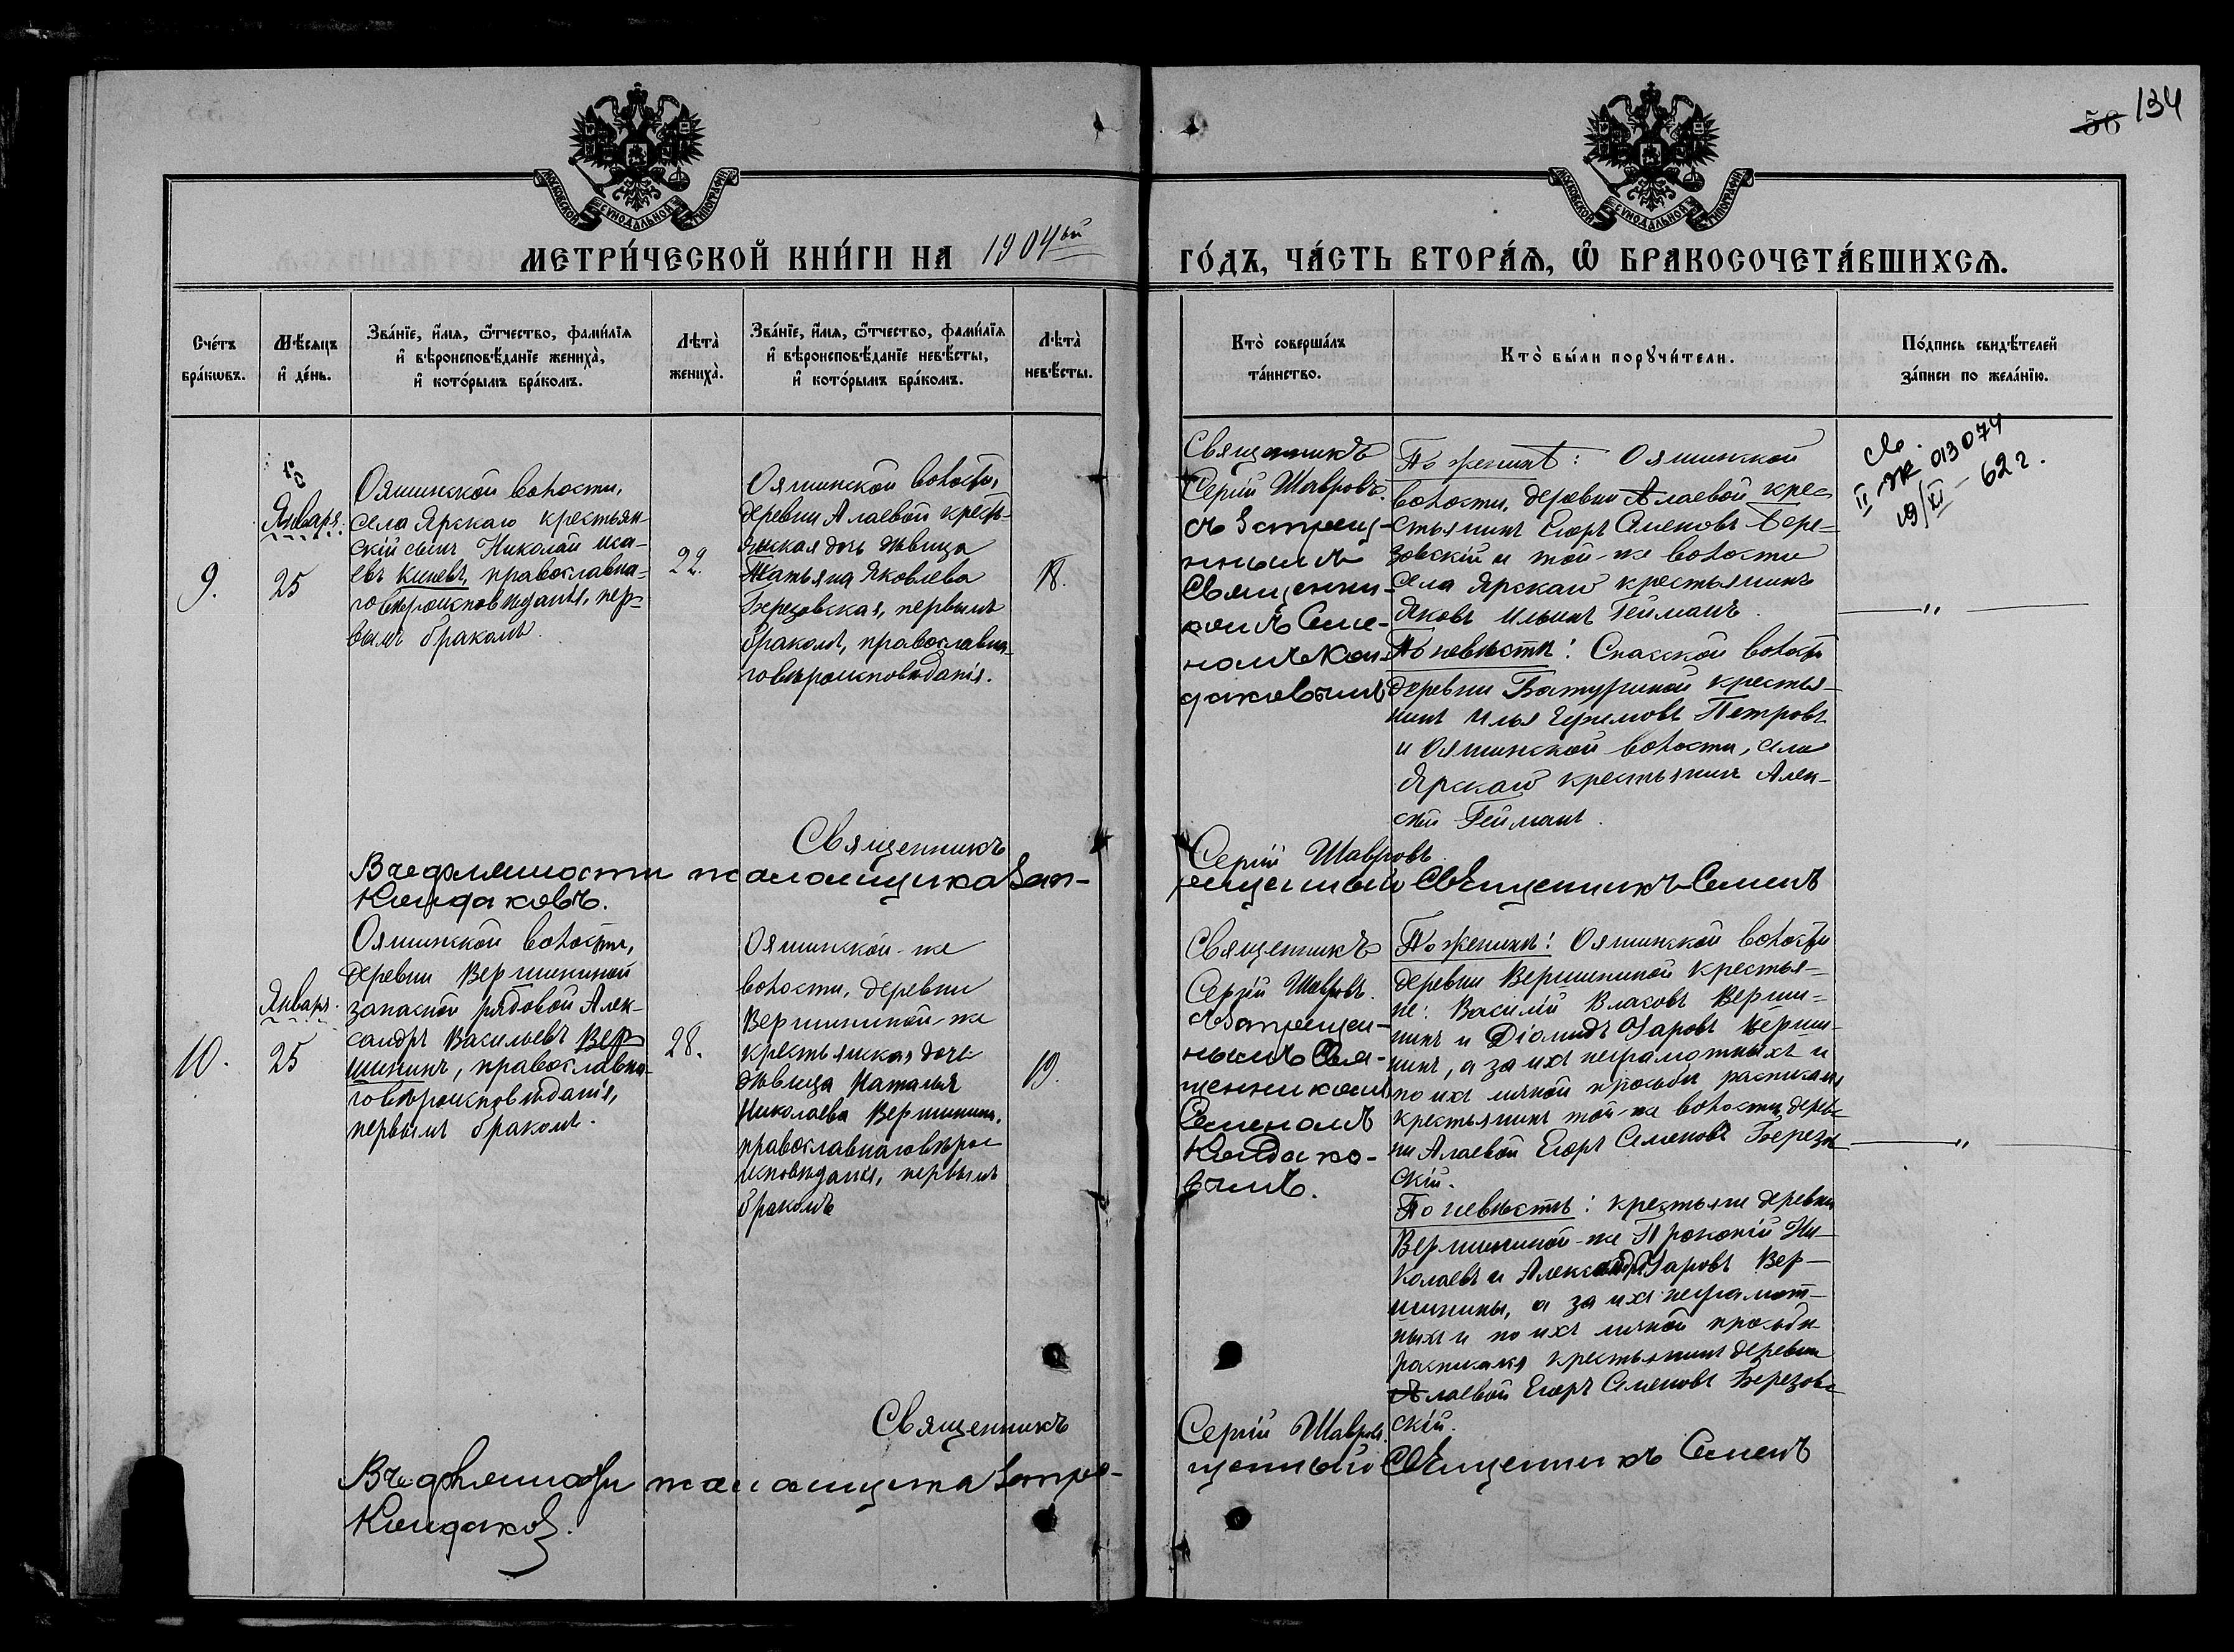 134
56
МОСКОВСКОЙ СѴНОДАЛЬНОЙ ТИПОГРАФІИ
МОСКОВСКОЙ СѴНОДАЛЬНОЙ ТИПОГРАФІИ
МЕТРИ́ЧЕСКОЙ КНИ́ГИ НА 1904ый
ГО́ДЪ, ЧА́СТЬ ВТОРА́Ѧ, Ѡ҆ БРАКОСОЧЕТА́ВШИХСѦ.
Сче́тъ
бра́кѡвъ.
Мѣ́сяцъ
и҆ де́нь.
Зва́нїе, и҆́мя, ѻ҆́тчество, фами́лїя
и҆ вѣроисповѣ́данїе жениха̀,
и҆ кото́рымъ бра́комъ.
Лѣта̀
жениха̀.
Зва́нїе, и҆́мя, ѻ҆́тчество, фами́лїя
и҆ вѣроисповѣ́данїе невѣ́сты,
и҆ кото́рымъ бра́комъ.
Лѣта̀
невѣ́сты.
Кто̀ соверша́лъ
та́инство.
Кто̀ бы́ли порꙋчи́тели.
По́дпись свидѣ́телей
за́писи по жела́нїю.
9.
Января.
25
Ояшинской волости,
села Ярскаго крестьян-
скій сынъ Николай Иса-
евъ Киневъ, православна-
говѣроисповѣданія, пер-
вымъ бракомъ.
22.
Ояшинской волости,
деревни Алаевой кресть-
янская дочь дѣвица
Татьяна Яковлева
Березовская, первымъ
бракомъ, православна-
говѣроисповѣданія.
18.
Священникъ
Сергій Шавровъ.
съ Запрещ-
ннымъ
Священни-
комъ Семе-
номъ Кон-
даковымъ
По женихѣ: Ояшинской
волости, деревни Алаевой крес-
стьянинъ Егоръ Семеновъ Бере-
зовскій и той-же волости
села Ярскаго крестьянинъ
Яковъ Ильинъ Гейманъ.
По невѣстѣ: Спасской волости
деревни Батуриной крестья-
нинъ Илья Ефимовъ Петровъ
и Ояшинской волости, села
Ярскаго крестьянинъ Алек-
сѣй Гейманъ.
св.
II-Ж 013074
19/XI - 62 г.
Священникъ
Сергій Шавровъ
В должности псаломщика Зап-
рещенный Священникъ Семенъ
Кондаковъ.
10.
Января.
25
Ояшинской волости,
деревни Вершининой
запасной рядовой Алек-
сандръ Васильевъ Вер-
шининъ, православна-
говѣроисповѣданія,
первымъ бракомъ.
28.
Ояшинской-же
волости, деревни
Вершининой-же
крестьянская дочь
дѣвица Наталья
Николаева Вершинина,
православнаговѣро-
исповѣданія, первымъ
бракомъ
19.
Священникъ
Сергій Шавровъ.
съ Запрещен-
нымъ Свя-
щенникомъ
Семеномъ
Кондако-
вымъ.
По женихѣ: Ояшинской волости
деревни Вершининой крестья-
не: Василій Власовъ Верши-
нинъ и Діомидъ Уаровъ Верши-
нинъ, а за ихъ неграмотныхъ и
по ихъ личной просьбѣ расписался
крестьянинъ той-же волости дерев-
ни Алаевой Егоръ Семеновъ Березов-
скій.
По невѣстѣ: крестьяне деревни
Вершининой-же Прокопій Ни-
колаевъ и Александръ Уаровъ Вер-
шинины, а за ихъ неграмот-
ныхъ и по ихъ личной просьбѣ
расписался крестьянинъ деревни
Алаевой Егоръ Семеновъ Березов-
скій.
Священникъ
Сергій Шавровъ.
В должности псаломщика Запре-
щенный Священникъ Семенъ
Кондаковъ.